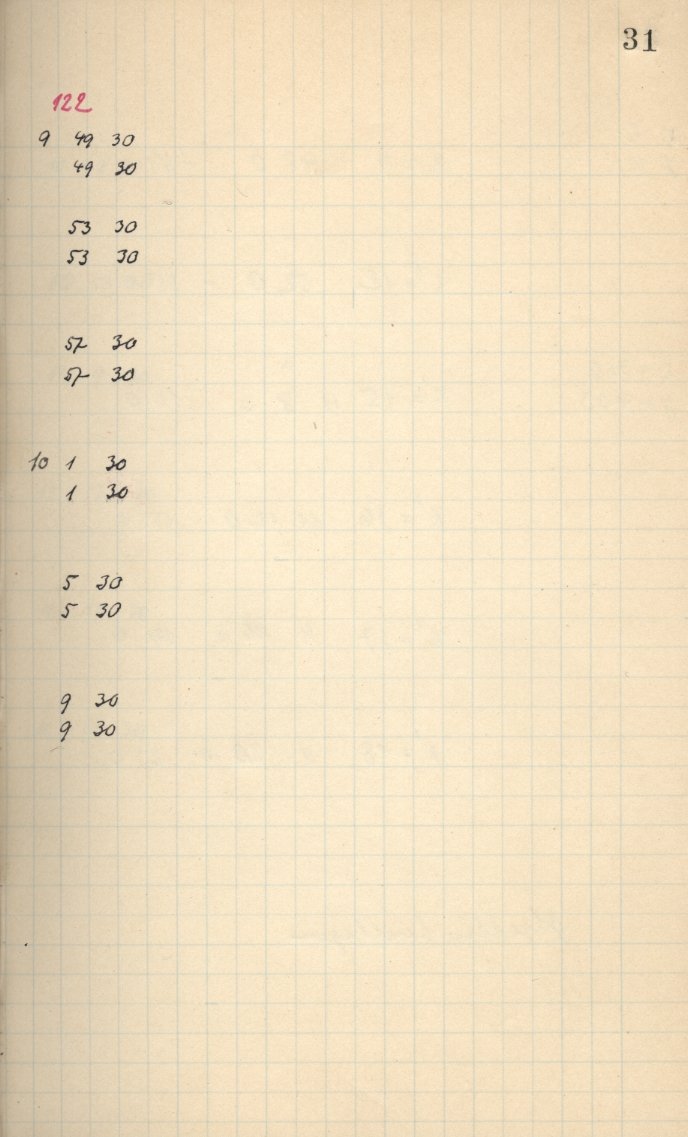 31
122
9 49 30
49 30
53 30
53 30
57 30
57 30
10 1 30
1 30
5 30
5 30
9 30
9 30